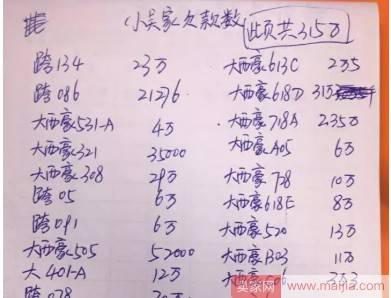 小吴家欠款数 此页共315万
跨134 23万
跨086 21276
大西豪531-A 4万
大西豪321 35000
大西豪308 29万
跨05 6万
跨091 6万
大西豪505 52000
大401-A 12万
跨078
大西豪613C 2万5
大西豪618D 31万
大西豪718A 235万
大西豪A05 6万
大西豪738 10万
大西豪618E 8万
大西豪520 13万
大西豪B03 11万
卖家网
www.maijia.com